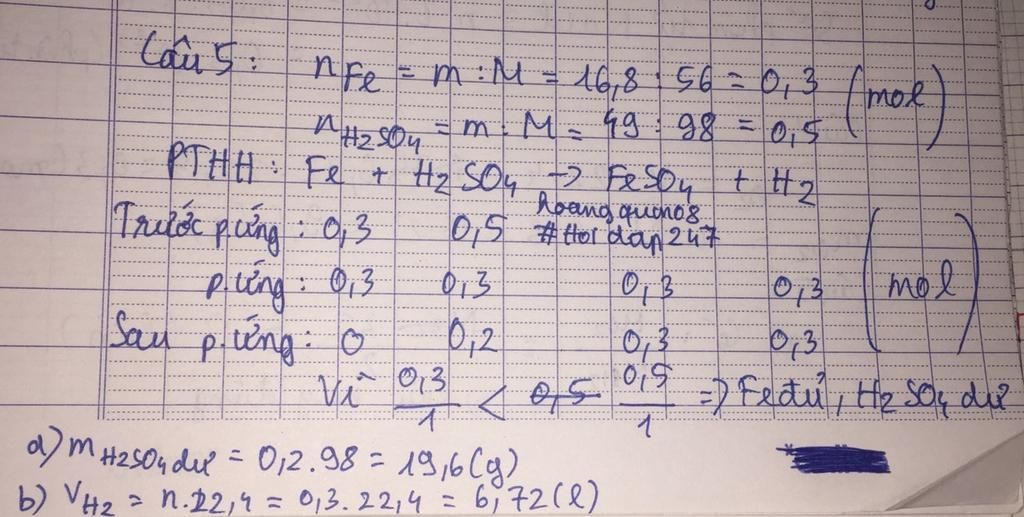 Câu 5: nFe = m : M = 16,8 : 56 = 0,3 (mol)
nH2SO4 = m : M = 49 : 98 = 0,5
PTHH: Fe + H2SO4 → FeSO4 + H2
hoangquano8
Trước p.ứng: 0,3 0,5 #Hoidap247
p.ứng: 0,3 0,3 0,3 0,3 (mol)
Sau p.ứng: 0 0,2 0,3 0,3
Vì 0,3/1 < 0,5 0,5/1 => Fe đủ, H2SO4 dư
a) mH2SO4 dư = 0,2.98 = 19,6(g)
b) VH2 = n.22,4 = 0,3.22,4 = 6,72(l)